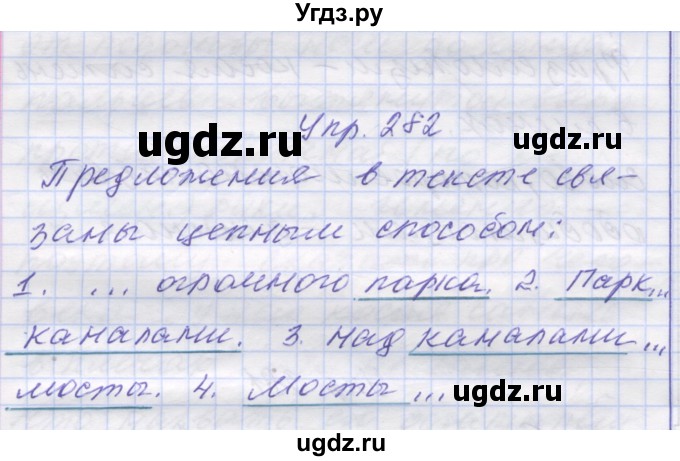 Угдз.ру
Упр. 282
ugdz.ru
ugdz.ru
Предложения в тексте свя-
заны цепным способом:
1. ... огромного парка. 2. Парк...
ugdz.ru
каналами. 3. над каналами...
мосты. 4. Мосты...
ugdz.ru
ugdz.ru